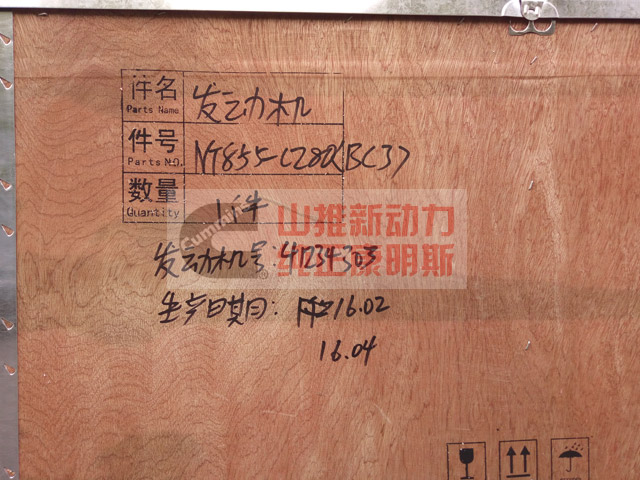 件名 发动机
Parts Name
件号 NT855-C280(BC3)
Parts NO.
数量 1件
Quantity
Cummins
山推新动力
纯正康明斯
发动机号: 41234303
生产日期: 16.02
16.04